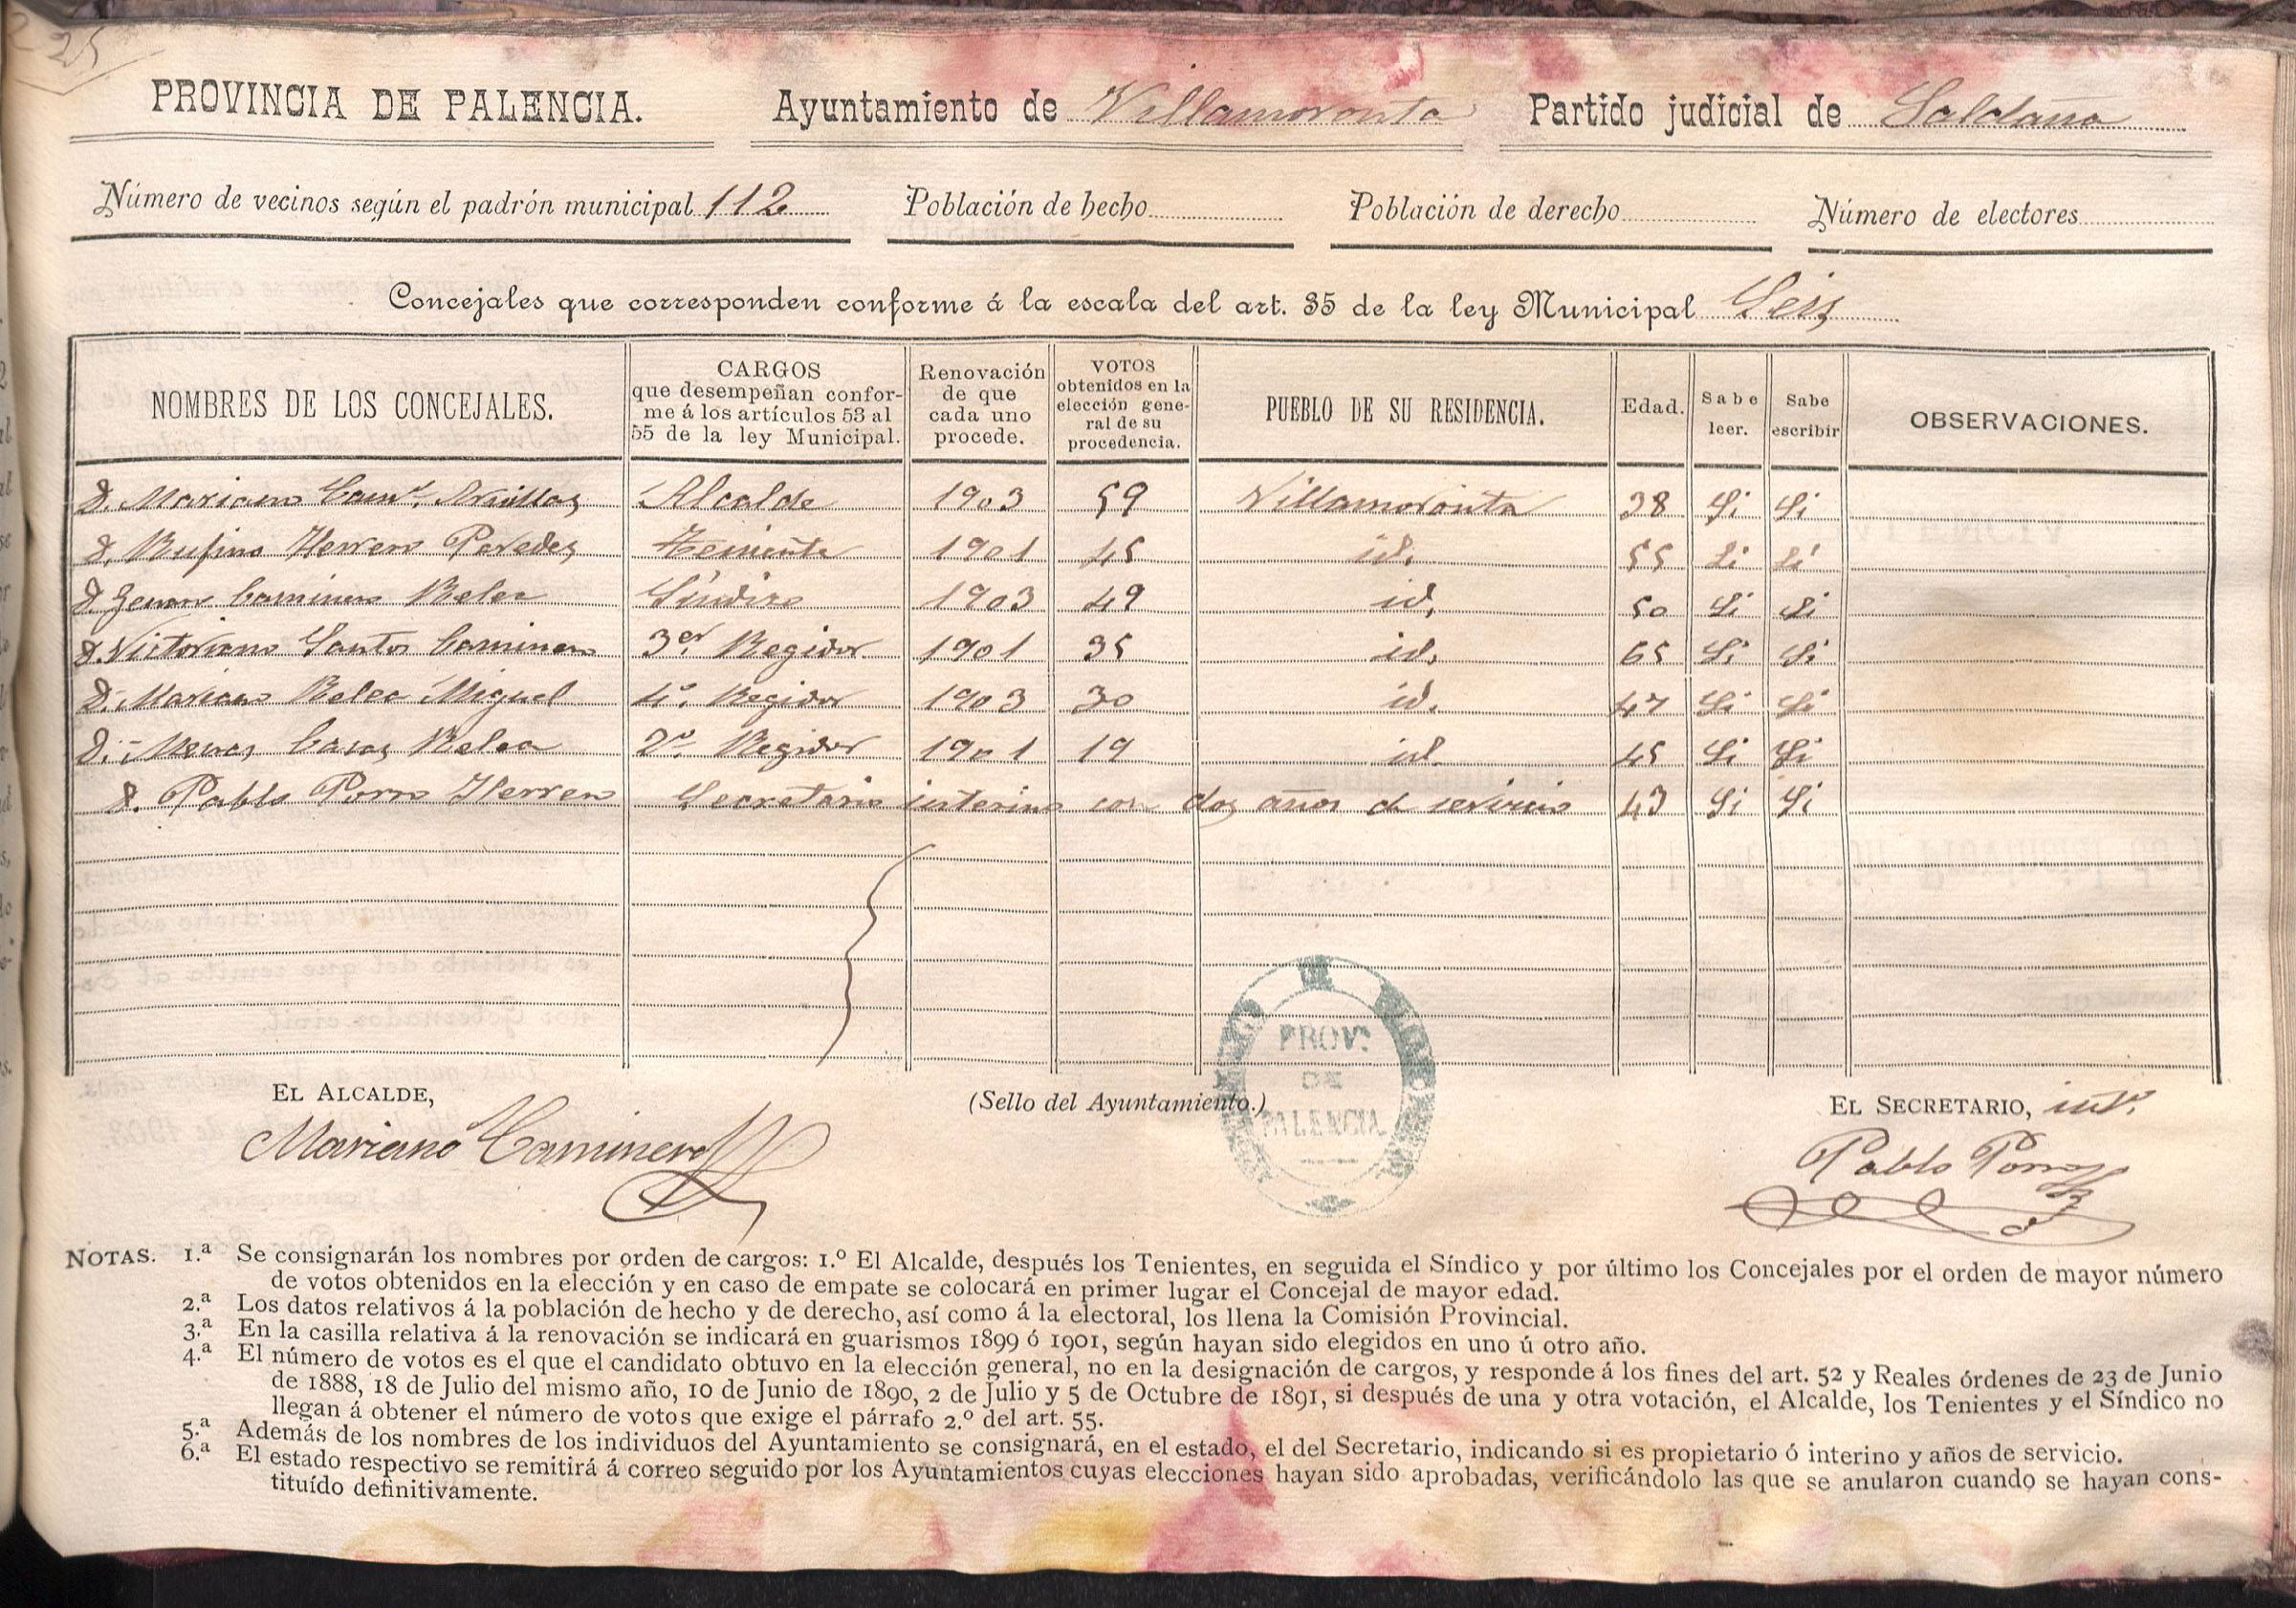 25
PROVINCIA DE PALENCIA. Ayuntamiento de Villamoronta Partido judicial de Saldaña
Número de vecinos según el padrón municipal 112 Población de hecho Población de derecho Número de electores
Concejales que corresponden conforme á la escala del art. 35 de la ley Municipal Seis
NOMBRES DE LOS CONCEJALES. CARGOS que desempeñan conforme á los artículos 53 al 55 de la ley Municipal. Renovación de que cada uno procede. VOTOS obtenidos en la elección general de su procedencia. PUEBLO DE SU RESIDENCIA. Edad. Sabe leer. Sabe escribir OBSERVACIONES.
D. Mariano Cam.º Alcalde 1903 59 Villamoronta 38 Si Si
D. Rufino Herrero Paredes Teniente 1901 45 id. 55 Si Si
D. Zenon Caminero Relea Síndico 1903 49 id. 50 Si Si
D. Victoriano Santos Caminero 3er Regidor 1901 35 id. 65 Si Si
D. Mariano Relea Miguel 4º. Regidor 1903 30 id. 47 Si Si
D. Casas Relea 2º. Regidor 1901 19 id. 45 Si Si
D. Pablo Porro Herrero Secretario interino con dos años de servicio 43 Si Si
EL ALCALDE, (Sello del Ayuntamiento.) EL SECRETARIO, intº.
Mariano Caminero Pablo Porro
PROV.
DE
PALENCIA
NOTAS. 1.ª Se consignarán los nombres por orden de cargos: 1.º El Alcalde, después los Tenientes, en seguida el Síndico y por último los Concejales por el orden de mayor número
de votos obtenidos en la elección y en caso de empate se colocará en primer lugar el Concejal de mayor edad.
2.ª Los datos relativos á la población de hecho y de derecho, así como á la electoral, los llena la Comisión Provincial.
3.ª En la casilla relativa á la renovación se indicará en guarismos 1899 ó 1901, según hayan sido elegidos en uno ú otro año.
4.ª El número de votos es el que el candidato obtuvo en la elección general, no en la designación de cargos, y responde á los fines del art. 52 y Reales órdenes de 23 de Junio
de 1888, 18 de Julio del mismo año, 10 de Junio de 1890, 2 de Julio y 5 de Octubre de 1891, si después de una y otra votación, el Alcalde, los Tenientes y el Síndico no
llegan á obtener el número de votos que exige el párrafo 2.º del art. 55.
5.ª Además de los nombres de los individuos del Ayuntamiento se consignará, en el estado, el del Secretario, indicando si es propietario ó interino y años de servicio.
6.ª El estado respectivo se remitirá á correo seguido por los Ayuntamientos cuyas elecciones hayan sido aprobadas, verificándolo las que se anularon cuando se hayan cons-
tituído definitivamente.